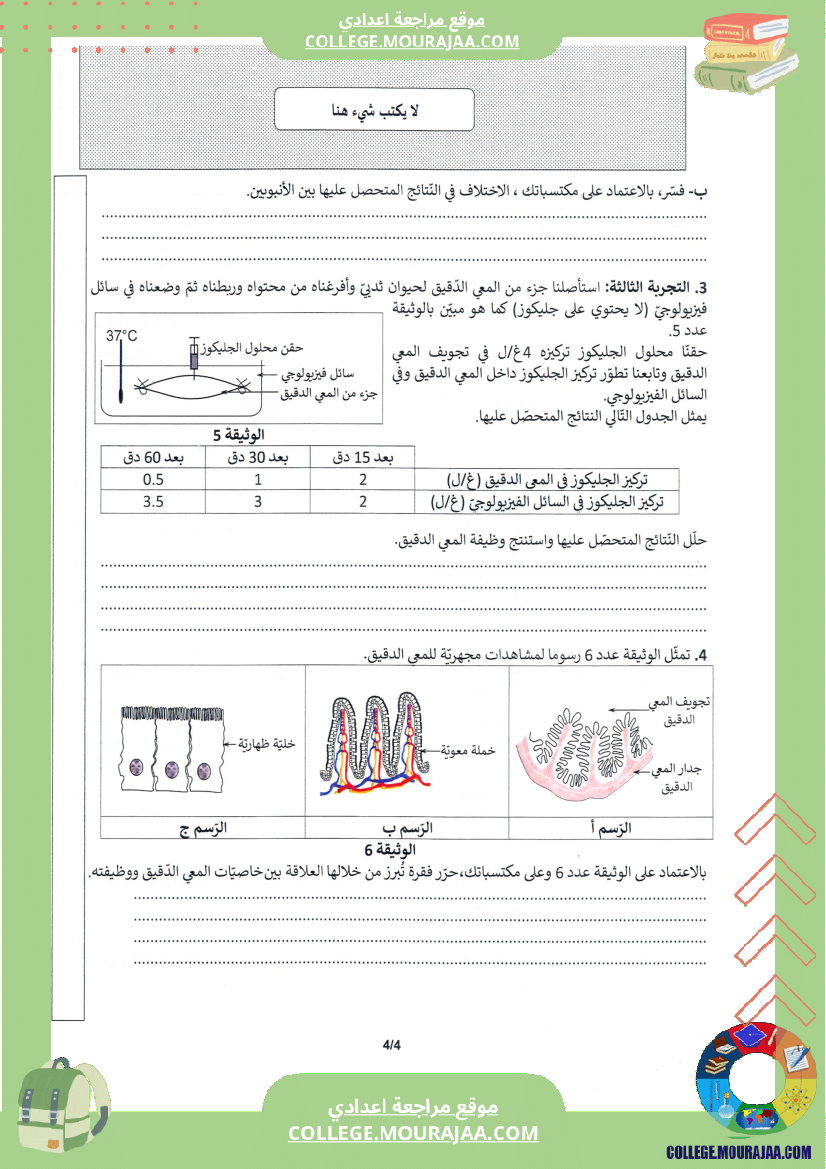 موقع مراجعة اعدادي
COLLEGE.MOURAJAA.COM
لا يكتب شيء هنا
ب- فسّر، بالاعتماد على مكتسباتك ، الاختلاف في النّتائج المتحصل عليها بين الأنبوبين.
3. التجربة الثالثة: استأصلنا جزء من المعي الدّقيق لحيوان ثدييّ وأفرغناه من محتواه وربطناه ثمّ وضعناه في سائل
فيزيولوجيّ (لا يحتوي على جليكوز) كما هو مبيّن بالوثيقة
عدد 5.
حقنّا محلول الجليكوز تركيزه 4غ/ل في تجويف المعي
الدقيق وتابعنا تطوّر تركيز الجليكوز داخل المعي الدقيق وفي
السائل الفيزيولوجي.
يمثل الجدول التّالي النتائج المتحصّل عليها.
37°C
حقن محلول الجليكوز
سائل فيزيولوجي
جزء من المعي الدقيق
الوثيقة 5
بعد 15 دق
بعد 30 دق
بعد 60 دق
تركيز الجليكوز في المعي الدقيق (غ/ل) 2 1 0.5
تركيز الجليكوز في السائل الفيزيولوجيّ (غ/ل) 2 3 3.5
حلّل النّتائج المتحصّل عليها واستنتج وظيفة المعي الدقيق.
4. تمثّل الوثيقة عدد 6 رسوما لمشاهدات مجهريّة للمعي الدقيق.
تجويف المعي
الدقيق
جدار المعي
الدقيق
خملة معويّة
خليّة ظهاريّة
الرّسم أ
الرّسم ب
الرّسم ج
الوثيقة 6
بالاعتماد على الوثيقة عدد 6 وعلى مكتسباتك،حرّر فقرة تُبرز من خلالها العلاقة بين خاصيّات المعي الدّقيق ووظيفته.
4/4
موقع مراجعة اعدادي
COLLEGE.MOURAJAA.COM
COLLEGE.MOURAJAA.COM